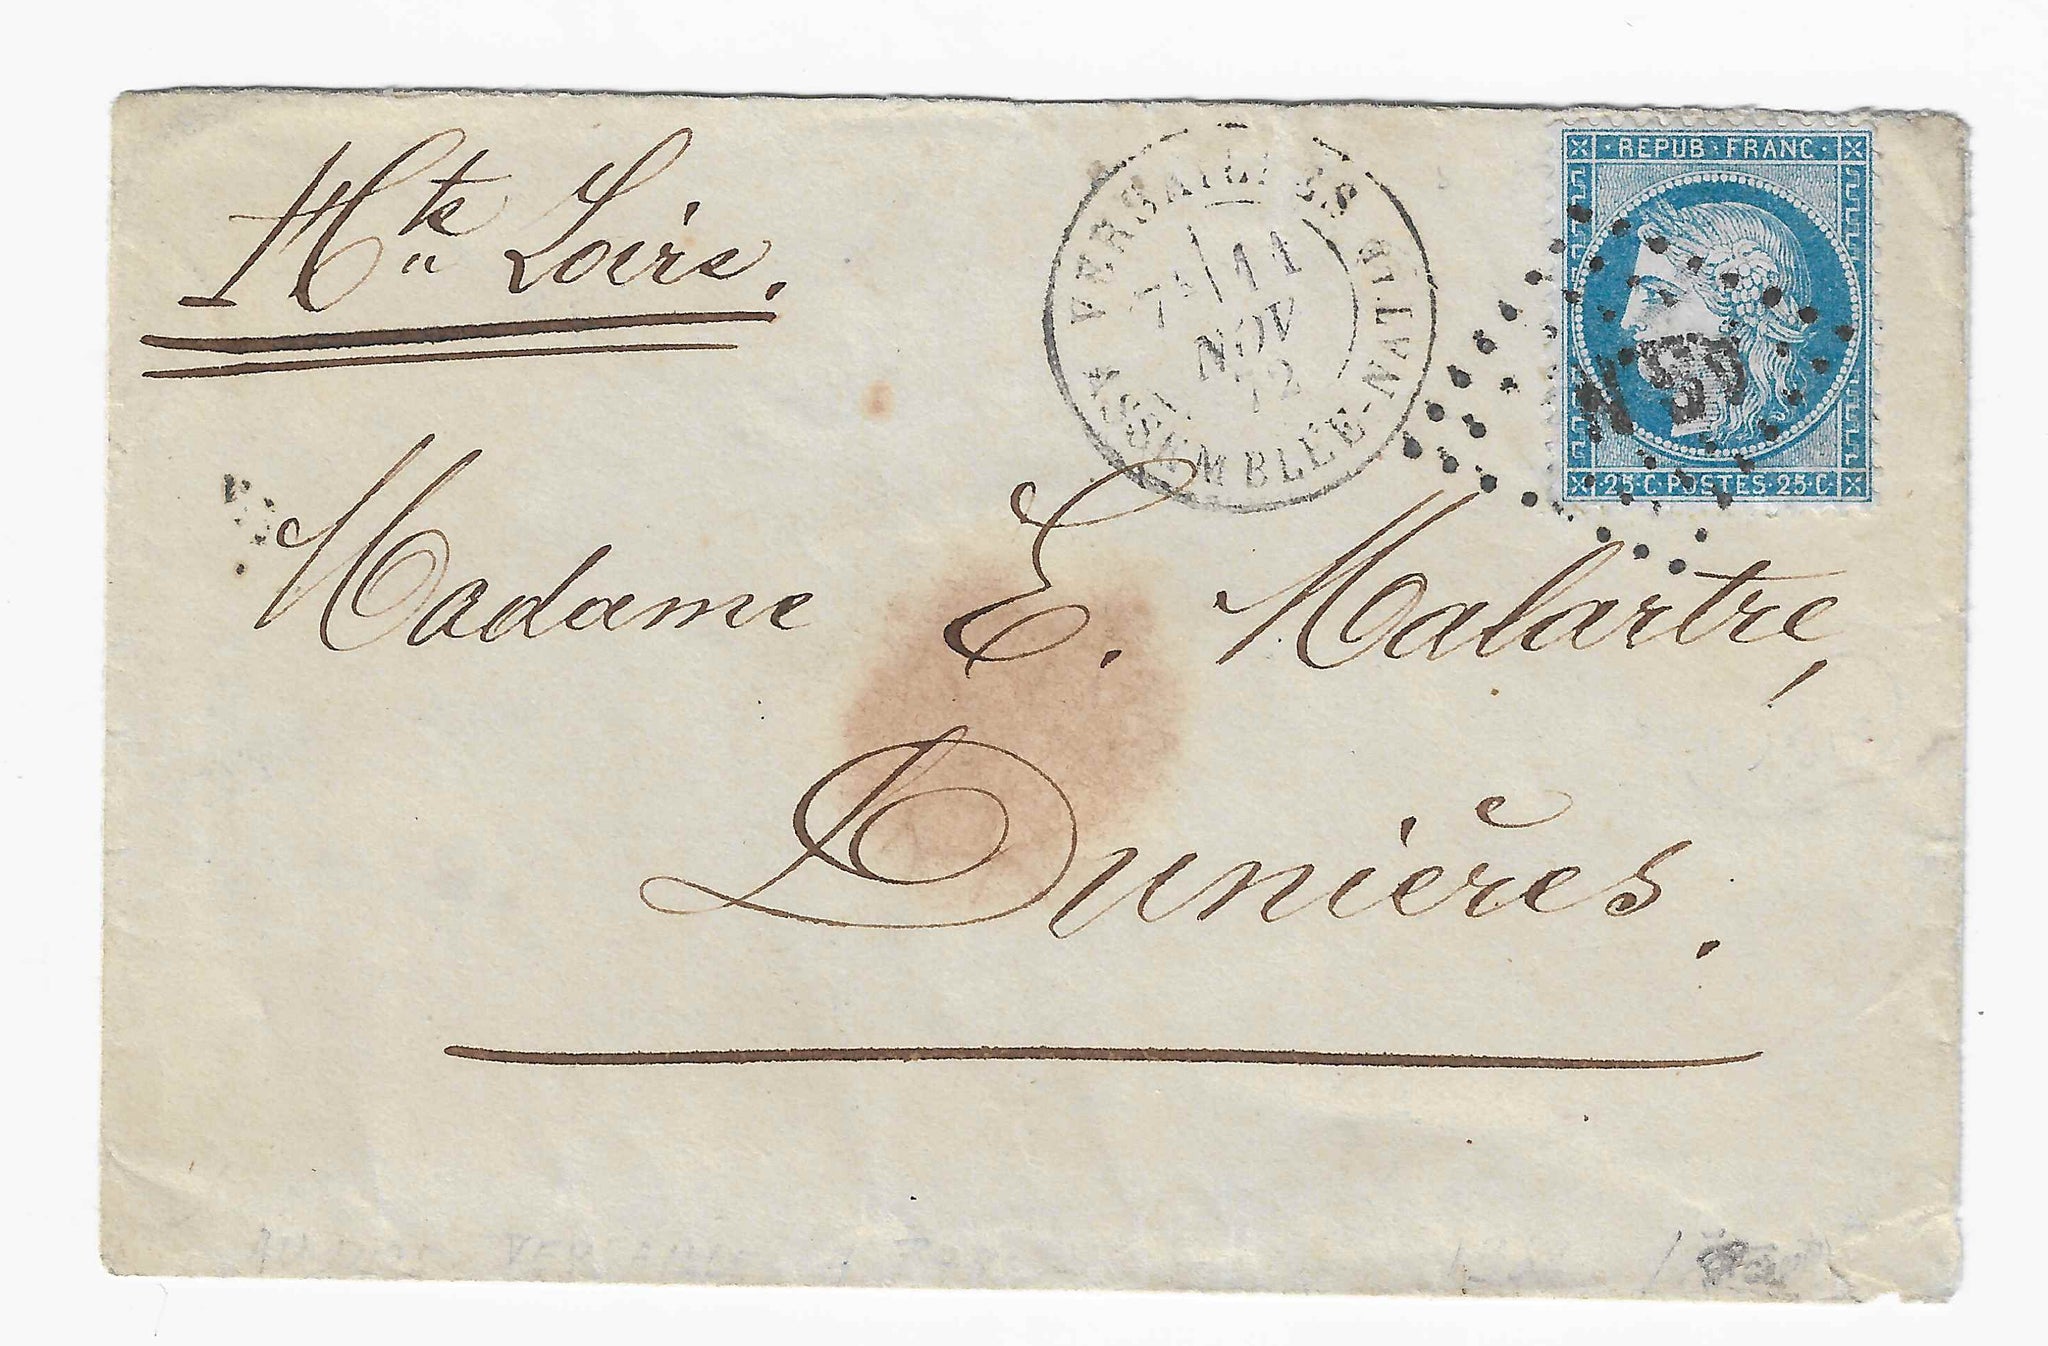 Hte Loire.
VERSAILLES
7E 11
NOV
72
ASSEMBLÉE-NATLE
REPUB·FRANC·
·25·C·POSTES·25·C·
Madame E. Malartre,
Dunières.